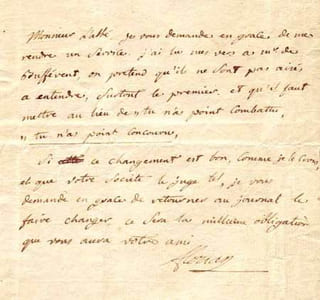 Monsieur l'abbé je vous demande en grace de me
rendre un service. j'ai lu mes vers a mr de
on pretend qu'il ne sont pas aisés
a entendre, surtout le premier. et qu'il faut
mettre au lieu de " tu n'a point combattu,
" tu n'a point concouru,
Si ce changement est bon, comme je le crois,
et que votre Société le juge tel, je vous
demande en grace de retourner au journal le
faire changer, ce sera la millieme obligation
que vous aura votre ami
florian